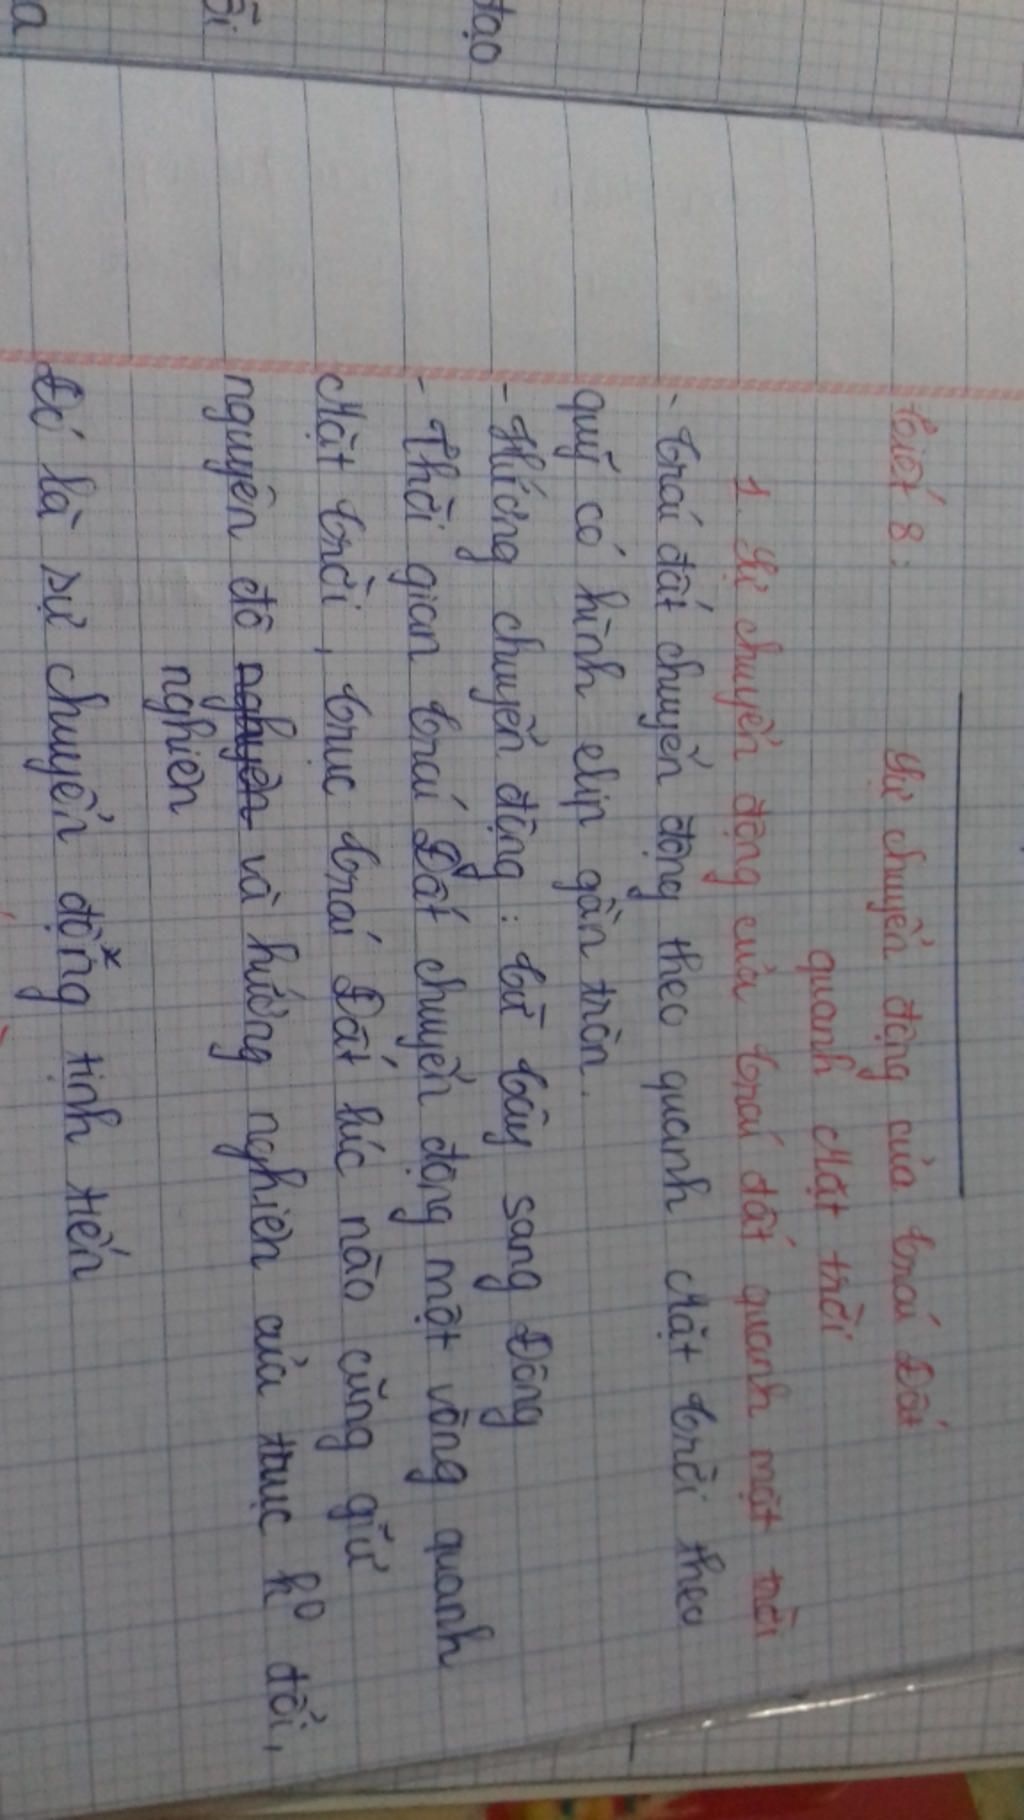 Tiết 8: Sự chuyển động của trái Đất
quanh Mặt trời
1. Sự chuyển động của trái đất quanh mặt trời
- Trái đất chuyển động theo quanh Mặt trời theo
quỹ có hình elip gần tròn.
- Hướng chuyển động: từ tây sang Đông
- Thời gian trái Đất chuyển động một vòng quanh
Mặt trời, trục trái Đất lúc nào cũng giữ
nguyên độ nghiên và hướng nghiên của trục k° đổi,
nghiên
Đó là sự chuyển động* tịnh tiến
đạo
ồi
a